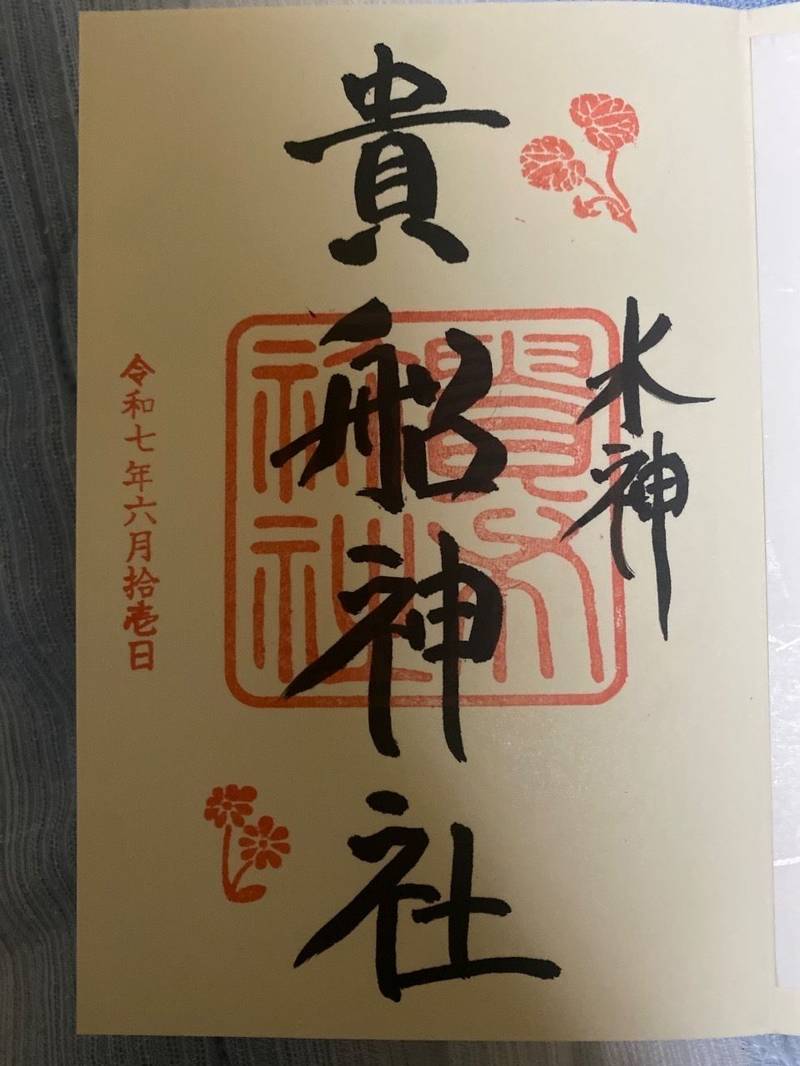 水神
貴船神社
貴船
神社
令和七年六月拾壱日